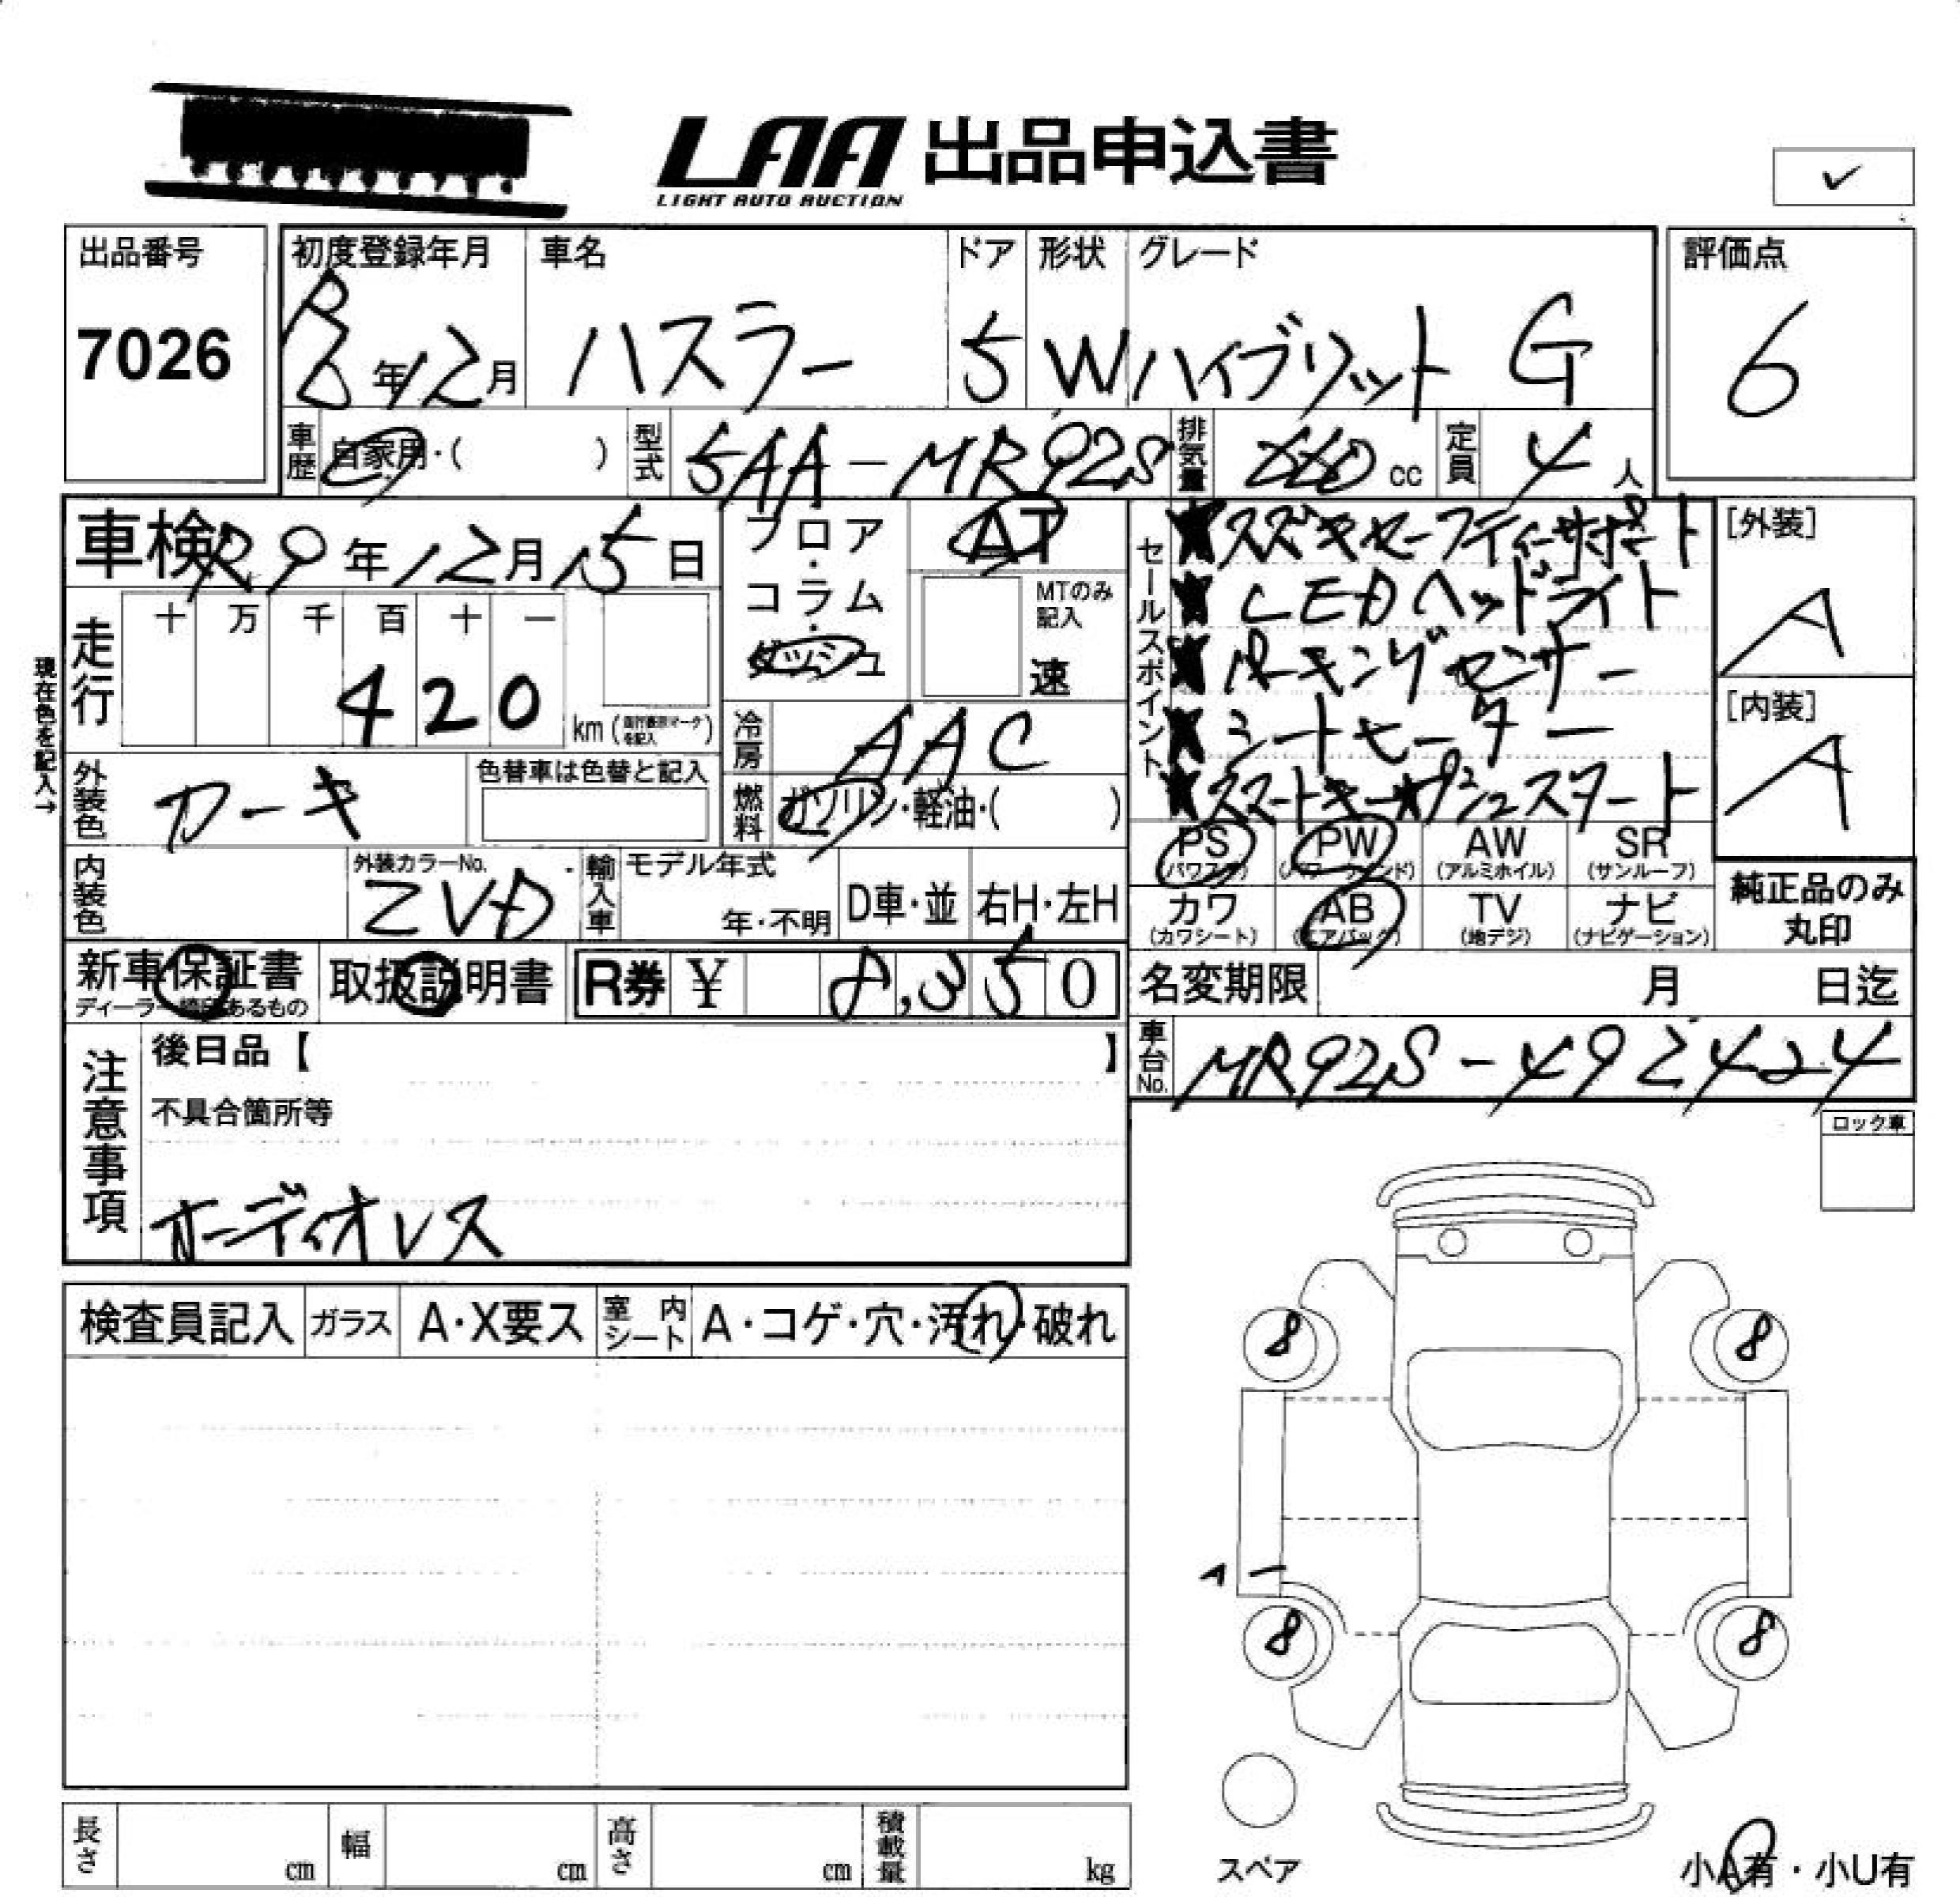 LAA 出品申込書
LIGHT AUTO AUCTION
出品番号
7026
初度登録年月
年12月
車名
ハスラー
ドア
5
形状
W
グレード
ハイブリット G
評価点
6
車歴
自家用・( )
型式
5AA-MR92S
排気量
660 cc
定員
4 人
車検
R9年12月15日
フロア・コラム・ダッシュ
AT
MTのみ記入
速
走行
十 万 千 百 十 一
420
km (走行表示マークを記入)
現在色を記入→
冷房
AAC
外装色
カーキ
色替車は色替と記入
燃料
ガソリン・軽油・( )
内装色
外装カラーNo.
ZVD
輸入車
モデル年式
年・不明
D車・並
右H・左H
セールスポイント
★スズキセーフティーサポート
★LEDヘッドライト
★パーキングセンサー
★シートヒーター
[外装]
A
[内装]
A
PS (パワステ)
PW
AW (アルミホイル)
SR (サンルーフ)
カワ (カワシート)
AB (エアバック)
TV (地デジ)
ナビ (ナビゲーション)
純正品のみ
丸印
新車保証書
取扱説明書
R券 ¥ 8,350
名変期限 月 日迄
車台No.
MR92S-492424
注意事項
後日品【 】
不具合箇所等
オーディオレス
ロック車
検査員記入
ガラス
A・X要ス
室内シート
A・コゲ・穴・汚れ・破れ
8
8
8
8
スペア
長さ cm
幅 cm
高さ cm
積載量 kg
小A有・小U有